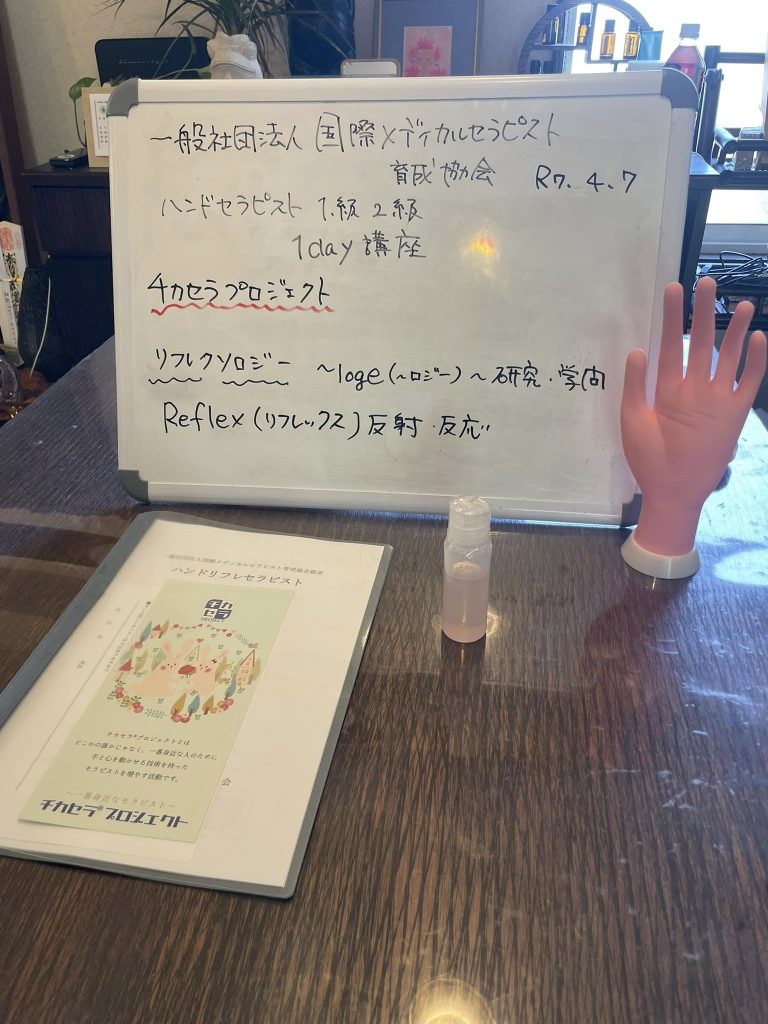 一般社団法人 国際メディカルセラピスト
育成協会 R7.4.7
ハンドセラピスト 1級 2級
1day 講座
チカセラプロジェクト
リフレクソロジー 〜loge(〜ロジー)〜研究・学問
Reflex(リフレックス)反射・反応
一般社団法人国際メディカルセラピスト育成協会認定
ハンドリフレセラピスト
チカ
セラ
PROJECT
チカセラ®プロジェクトとは
どこかの誰かじゃなく、一番身近な人のために
手と心を動かせる技術を持った
セラピストを増やす活動です。
会
〜一番身近なセラピスト〜
チカセラ®プロジェクト